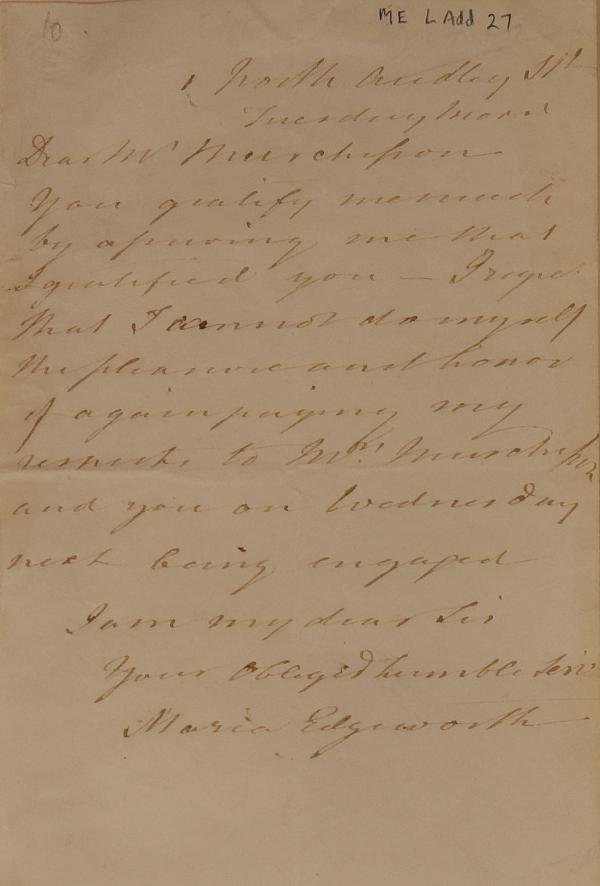 10
ME L Add 27
1 North Audley St
Tuesday Morn
Dear Mr Murchison
You gratify me much
by assuring me that
I gratified you — I regret
that I cannot do myself
the pleasure and honor
of again paying my
respects to Mrs. Murchison
and you on Wednesday
next being engaged
I am my dear Sir
Your Obliged humble Serv
Maria Edgeworth